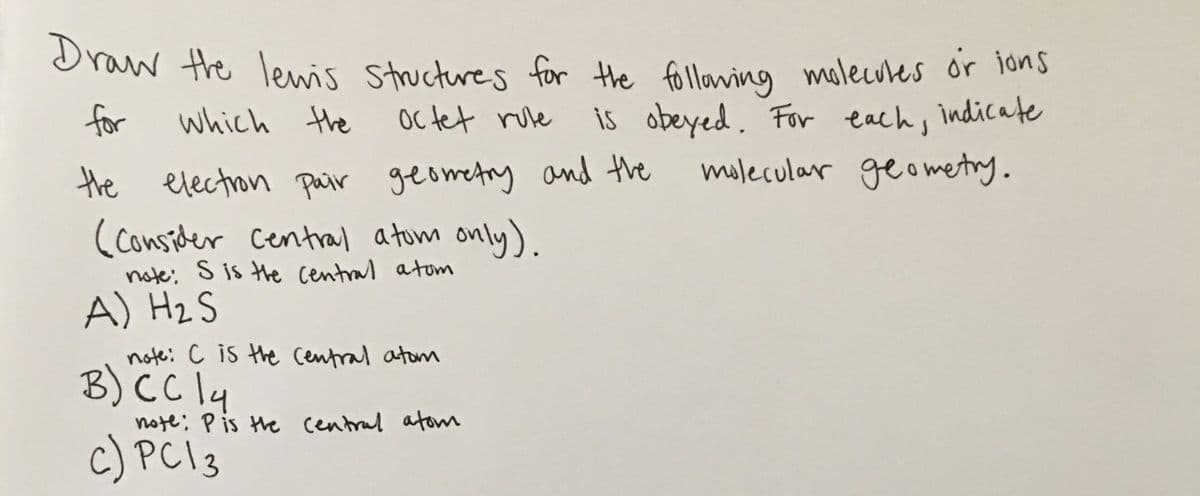 Draw the lewis structures for the following molecules or ions
for which the octet rule is obeyed. For each, indicate
the electron pair geometry and the molecular geometry.
(Consider central atom only).
note: S is the central atom
A) H2S
note: C is the central atom
B) CCl4
note: P is the central atom
C) PCl3